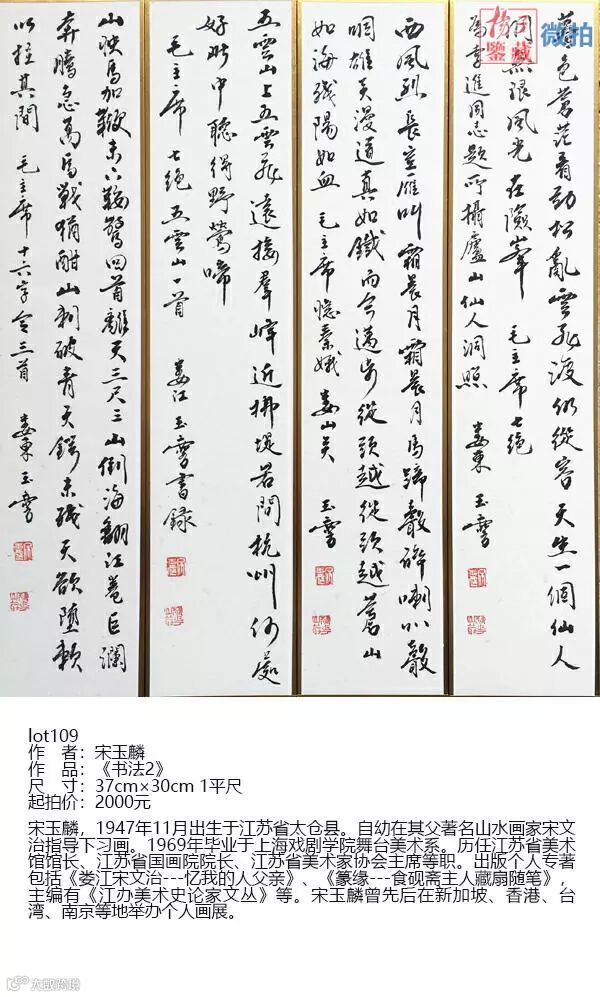 杨国鉴藏
微拍
暮色苍茫看劲松亂雲飛渡仍從容天生一個仙人
洞無限風光在險峯 毛主席七绝
為李進同志題所攝廬山仙人洞照 娄東玉麐
西風烈長空雁叫霜晨月霜晨月馬蹄聲碎喇叭聲
咽雄关漫道真如鐵而今邁步從頭越從頭越蒼山
如海殘陽如血 毛主席憶秦娥 娄山关 玉麐
五雲山上五雲飛遠接羣峰近拂堤若問杭州何處
好此中聽得野鶯啼
毛主席七绝五雲山一首 娄江玉麐書録
山快馬加鞭未下鞍驚回首離天三尺三山倒海翻江卷巨瀾
奔騰急萬馬戰猶酣山刺破青天鍔未殘天欲墮賴
以拄其間 毛主席十六字令三首 娄東玉麐
lot109
作 者：宋玉麟
作 品：《书法2》
尺 寸：37cm×30cm 1平尺
起拍价：2000元
宋玉麟，1947年11月出生于江苏省太仓县。自幼在其父著名山水画家宋文
治指导下习画。1969年毕业于上海戏剧学院舞台美术系。历任江苏省美术
馆馆长、江苏省国画院院长、江苏省美术家协会主席等职。出版个人专著
包括《娄江宋文治---忆我的人父亲》、《篆缘---食砚斋主人藏扇随笔》，
主编有《江办美术史论家文丛》等。宋玉麟曾先后在新加坡、香港、台
湾、南京等地举办个人画展。